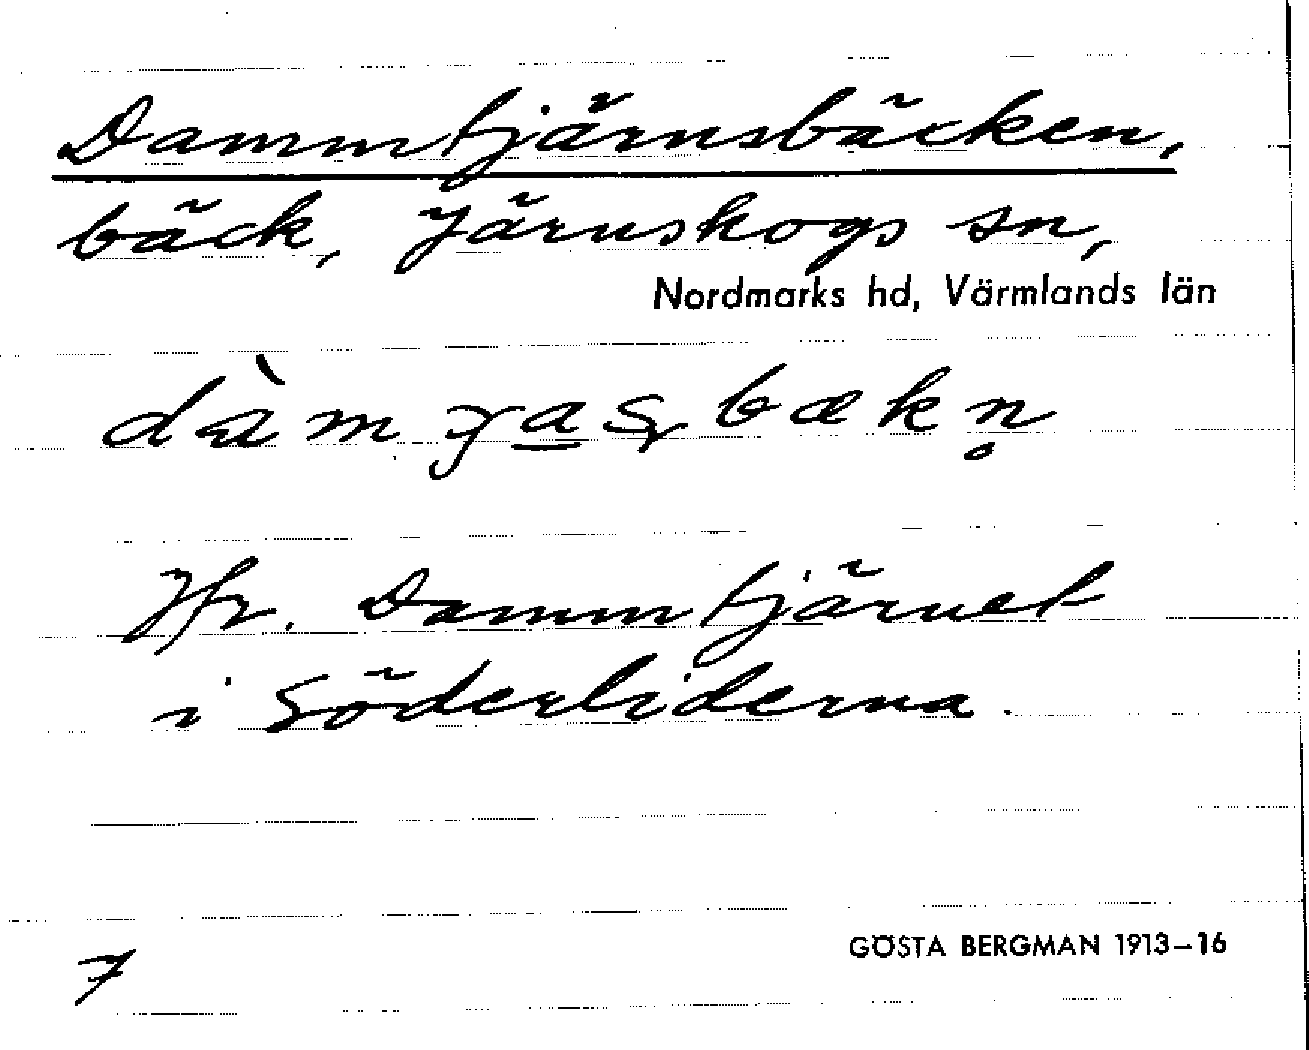 Dammtjärnsbäcken,
bäck, Järnskogs sn,
Nordmarks hd, Värmlands län
Jfr. Dammtjärnet
i Söderliderna.
7
GÖSTA BERGMAN 1913–16